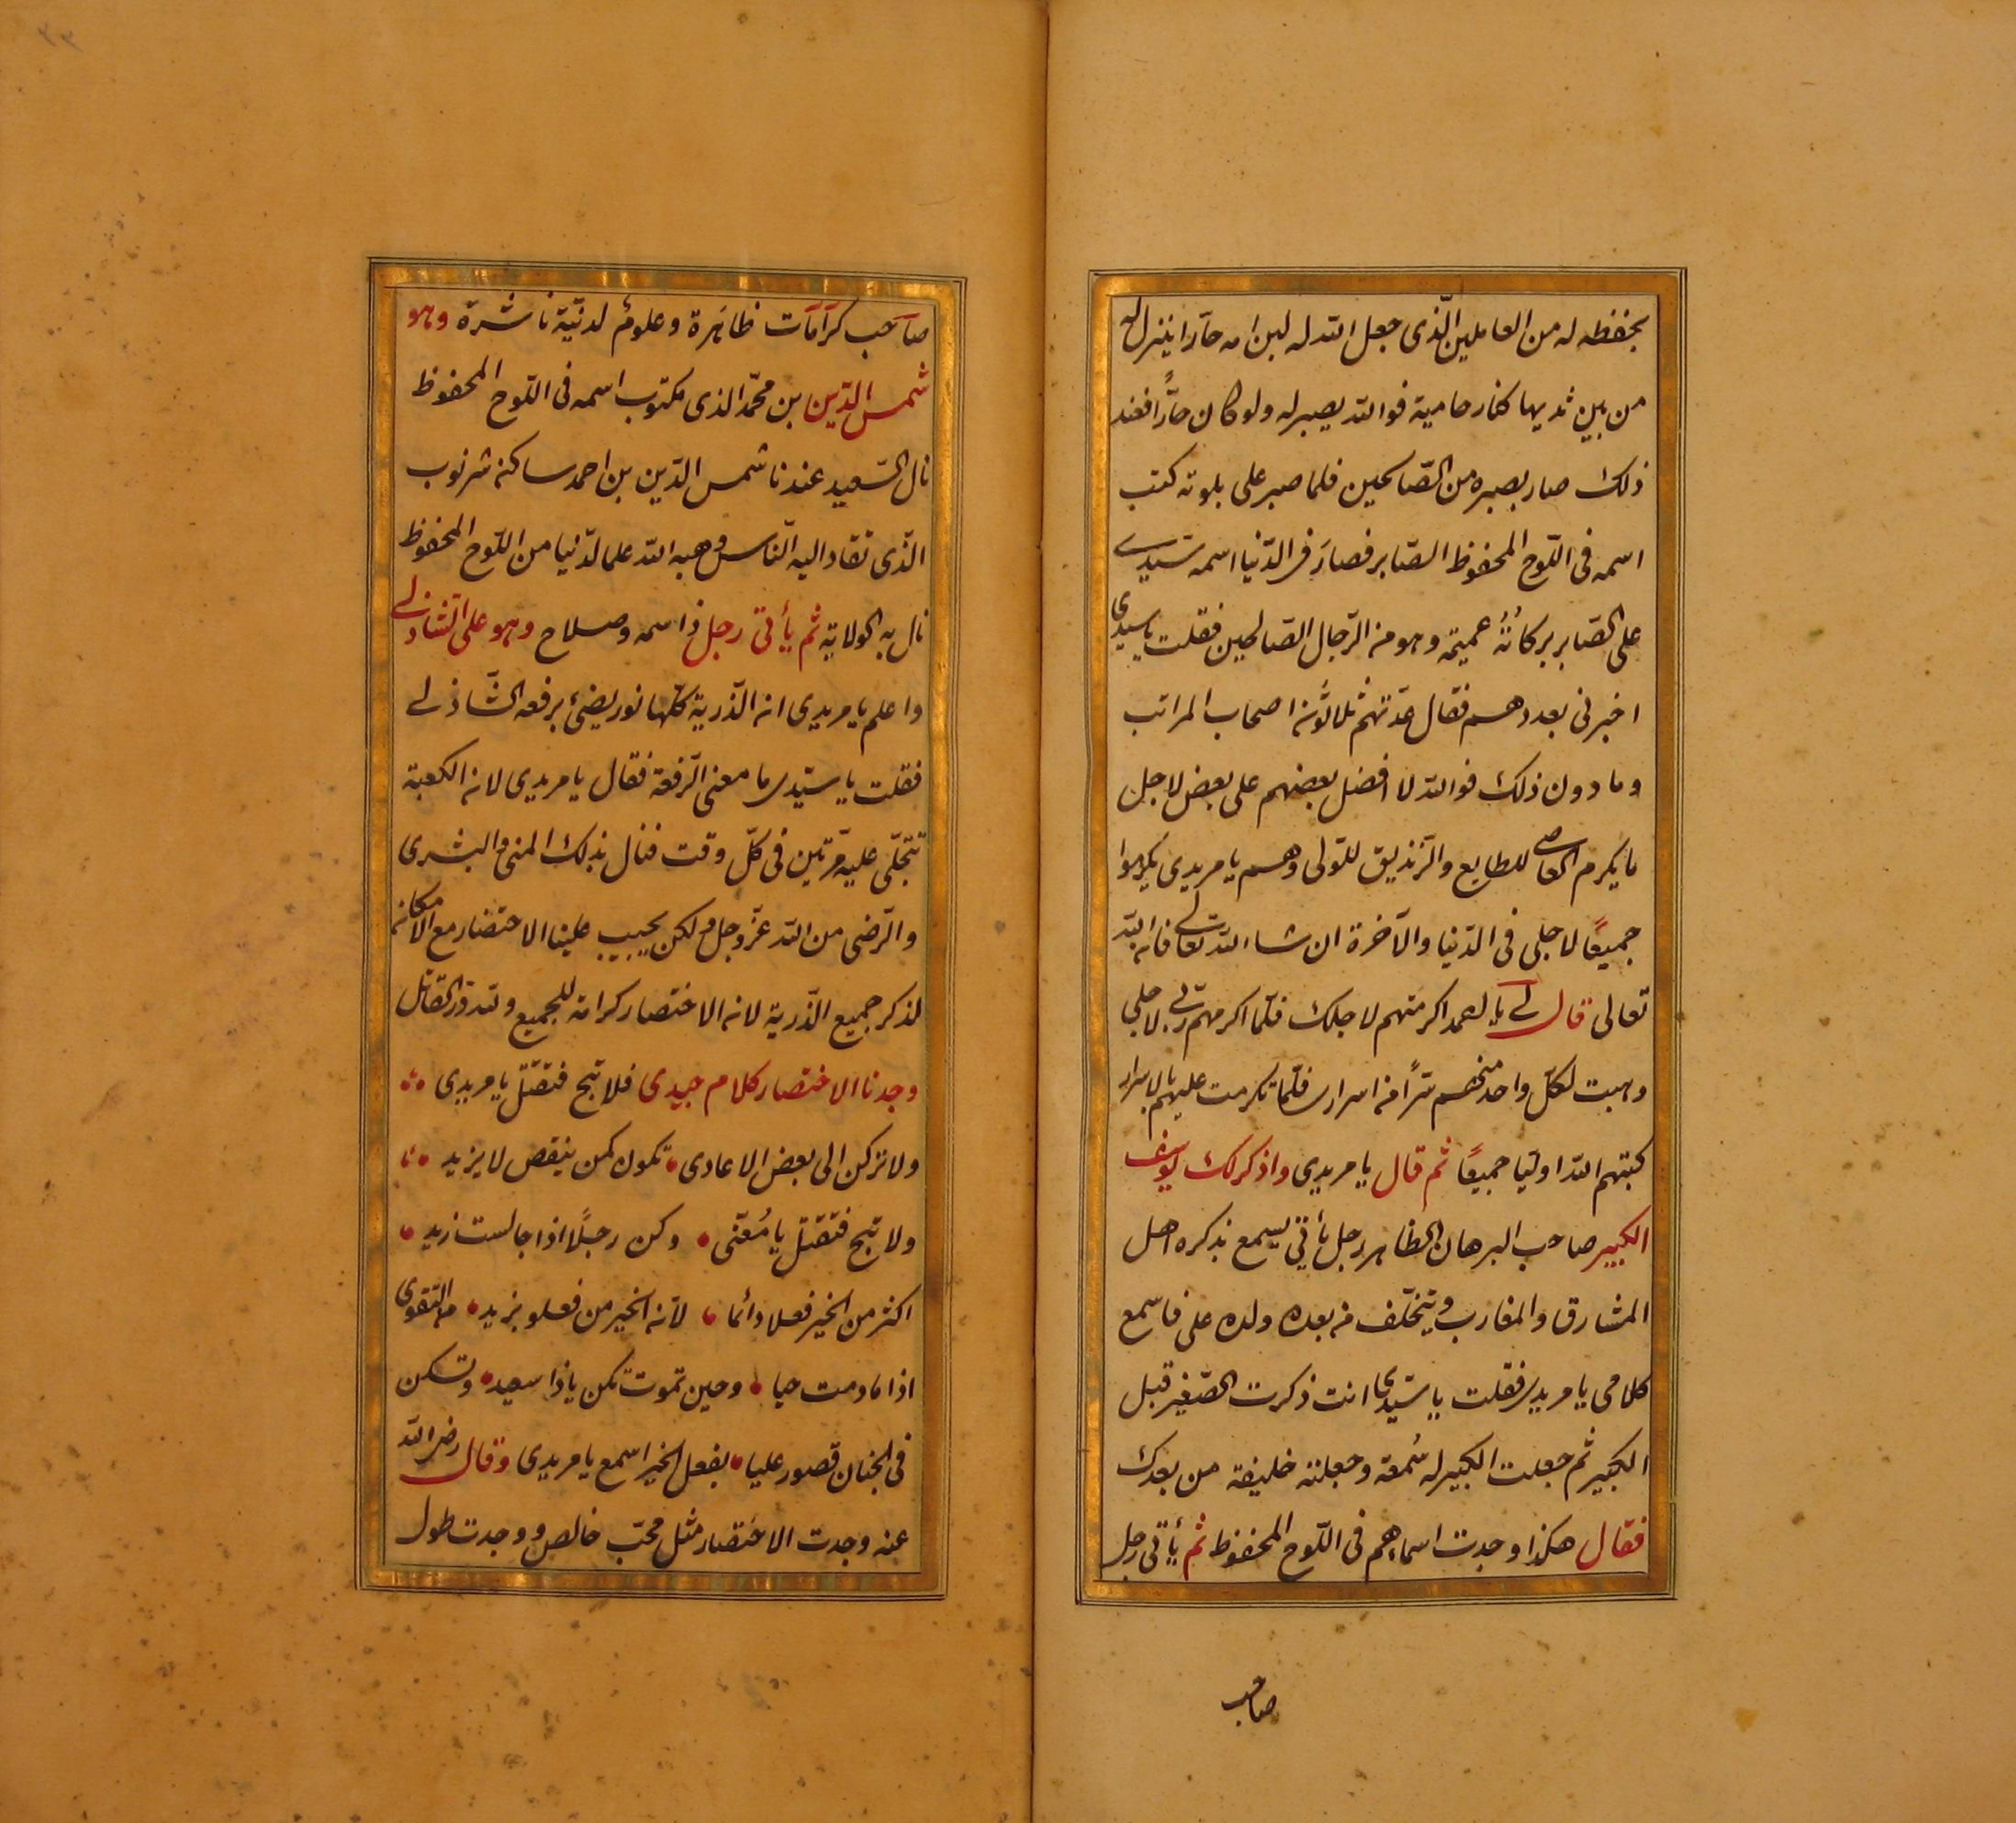 بحفظه له من العاملين الّذى جعل الله له لبن امه حارا ينزل له
من بين ثديها كنار حامية فوالله يصبر له ولو كان حارًّا فعند
ذلك صار بصبره من الصّالحين فلما صبر على بلوته كتب
اسمه فى اللّوح المحفوظ الصّابر فصارَ فى الدّنيا اسمه سَيّدى
على الصّابر بركاتُهُ عميمة وهو من الرّجال الصّالحين فقلت يا سيدى
اخبرنى بعددهم فقال عدّتهم ثلاثُون اصحاب المراتب
وما دون ذلك فوالله لا افضل بعضهم على بعض لاجل
ما يكرم العاصى للطايع والزّنديق للتولى وهم يا مريدى يكرموا
جميعًا لاجلى فى الدّنيا والآخرة ان شاء الله تعالى فان الله
تعالى قال لى يا اكرمتهم لاجلك فلمّا اكرمهم ربى لاجلى
وهبت لكلّ واحد منهم سرًّا من اسرارى فلمّا تكرمت عليهم بالاسرار
كتبهم الله اوليا جميعًا ثم قال يا مريدى واذكر لك يوسف
الكبير صاحب البرهان الظاهر رجل يأتى يسمع بذكره اهل
المشارق والمغارب ويتخلّف من بعده ولده على فاسمع
كلامى يا مريدى فقلت يا سيّدى انت ذكرت الصّغير قبل
الكبير ثم جعلت الكبير له سُمعة وجعلته خليفة من بعدك
فقال هكذا وجدت اسماءهم فى اللّوح المحفوظ ثم يأتى رجل
صاحب
صاحب كرامات ظاهرة وعلومٌ لدنيّة ناشرة وهو
شمس الدّين بن محمّد الذى مكتوب اسمه فى اللّوح المحفوظ
نال السّعيد عندنا شمس الدّين بن احمد ساكن شرنوب
الّذى تنقاد اليه النّاس وهبه الله علما لدّنيا من اللّوح المحفوظ
نال به الولاية ثم يأتى رجل ذا سمة وصلاح وهو على الشاذلى
واعلم يا مريدى ان الذّرية كلّها نور يضئ برفعه الشّاذلى
فقلت يا سيّدى ما معنى الرّفعة فقال يا مريدى لان الكعبة
تتجلّى عليه مرّتين فى كلّ وقت فنال بذلك المنى والبشرى
والرّضى من الله عزّ وجل ولكن يجيب علينا الاختصار مع الامكان
لذكر جميع الذّرية لان الاختصار كرامة للجميع ولله درّ القائل
وجدنا الاختصار كلام جيدى فلا تبح فتقتل يا مريدى
ولا تركن الى بعض الاعادى تكون كمن ينقص لا يزيد
ولا تبح فتقتل يا مُعنّى وكن رجلًا اذا جالست زيد
اكثر من الخير فعلا دائما لان الخير من فعلو يزيد من التقوى
اذا مادمت حيا وحين تموت تكن يا ذا سعيد وتسكن
فى الجنان قصور عليا بفعل الخير اسمع يا مريدى وقال رضى الله
عنه وجدت الاختصار مثل محبّ خالص ووجدت طول